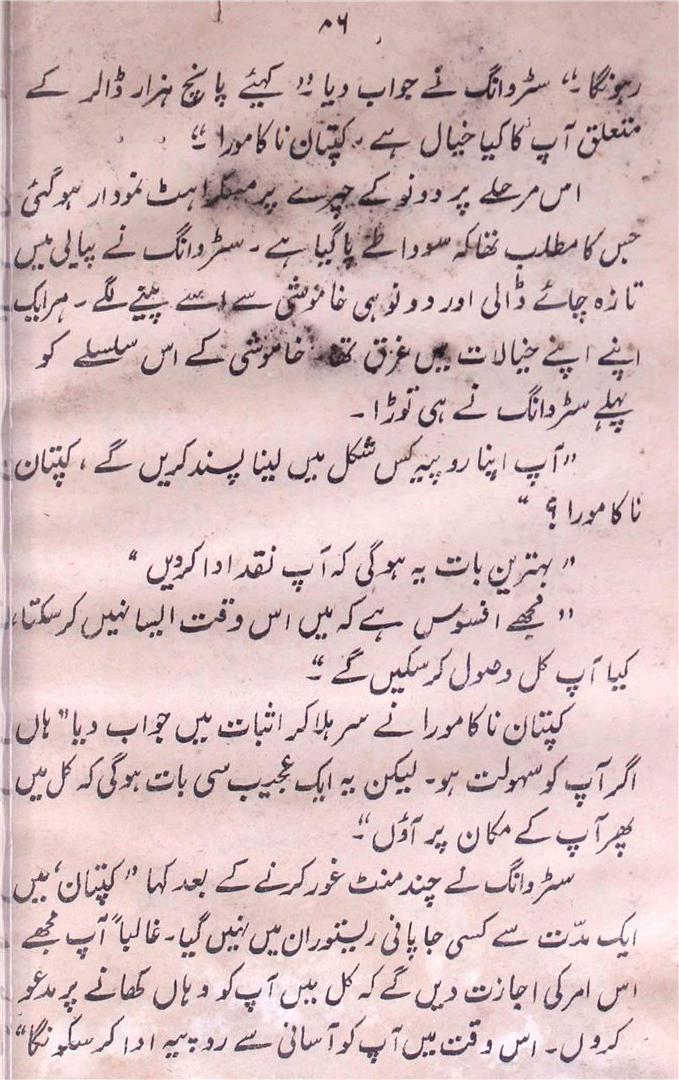 ۸۶
رہونگا۔“ سٹروانگ نے جواب دیا۔ ”کہئے پانچ ہزار ڈالر کے
متعلق آپ کا کیا خیال ہے، کپتان ناکامورا۔“
اس مرحلے پر دونو کے چہرے پر مسکراہٹ نمودار ہوگئی
جس کا مطلب تھا کہ سودا طے پا گیا ہے۔ سٹروانگ نے پیالی میں
تازہ چائے ڈالی اور دونو ہی خاموشی سے اسے پینے لگے۔ ہر ایک
اپنے اپنے خیالات میں غرق تھا۔ خاموشی کے اس سلسلے کو
پہلے سٹروانگ نے ہی توڑا۔
”آپ اپنا روپیہ کس شکل میں لینا پسند کریں گے، کپتان
ناکامورا؟“
”بہترین بات یہ ہوگی کہ آپ نقد ادا کردیں“
”مجھے افسوس ہے کہ میں اس وقت ایسا نہیں کرسکتا،
کیا آپ کل وصول کرسکیں گے۔“
کپتان ناکامورا نے سر ہلا کر اثبات میں جواب دیا ”ہاں
اگر آپ کو سہولت ہو۔ لیکن یہ ایک عجیب سی بات ہوگی کہ کل میں
پھر آپ کے مکان پر آؤں“۔
سٹروانگ نے چند منٹ غور کرنے کے بعد کہا ”کپتان، میں
ایک مدّت سے کسی جاپانی ریستوران میں نہیں گیا۔ غالباً آپ مجھے
اس امر کی اجازت دیں گے کہ کل میں آپ کو وہاں کھانے پر مدعو
کروں۔ اس وقت میں آپ کو آسانی سے روپیہ ادا کرسکونگا“